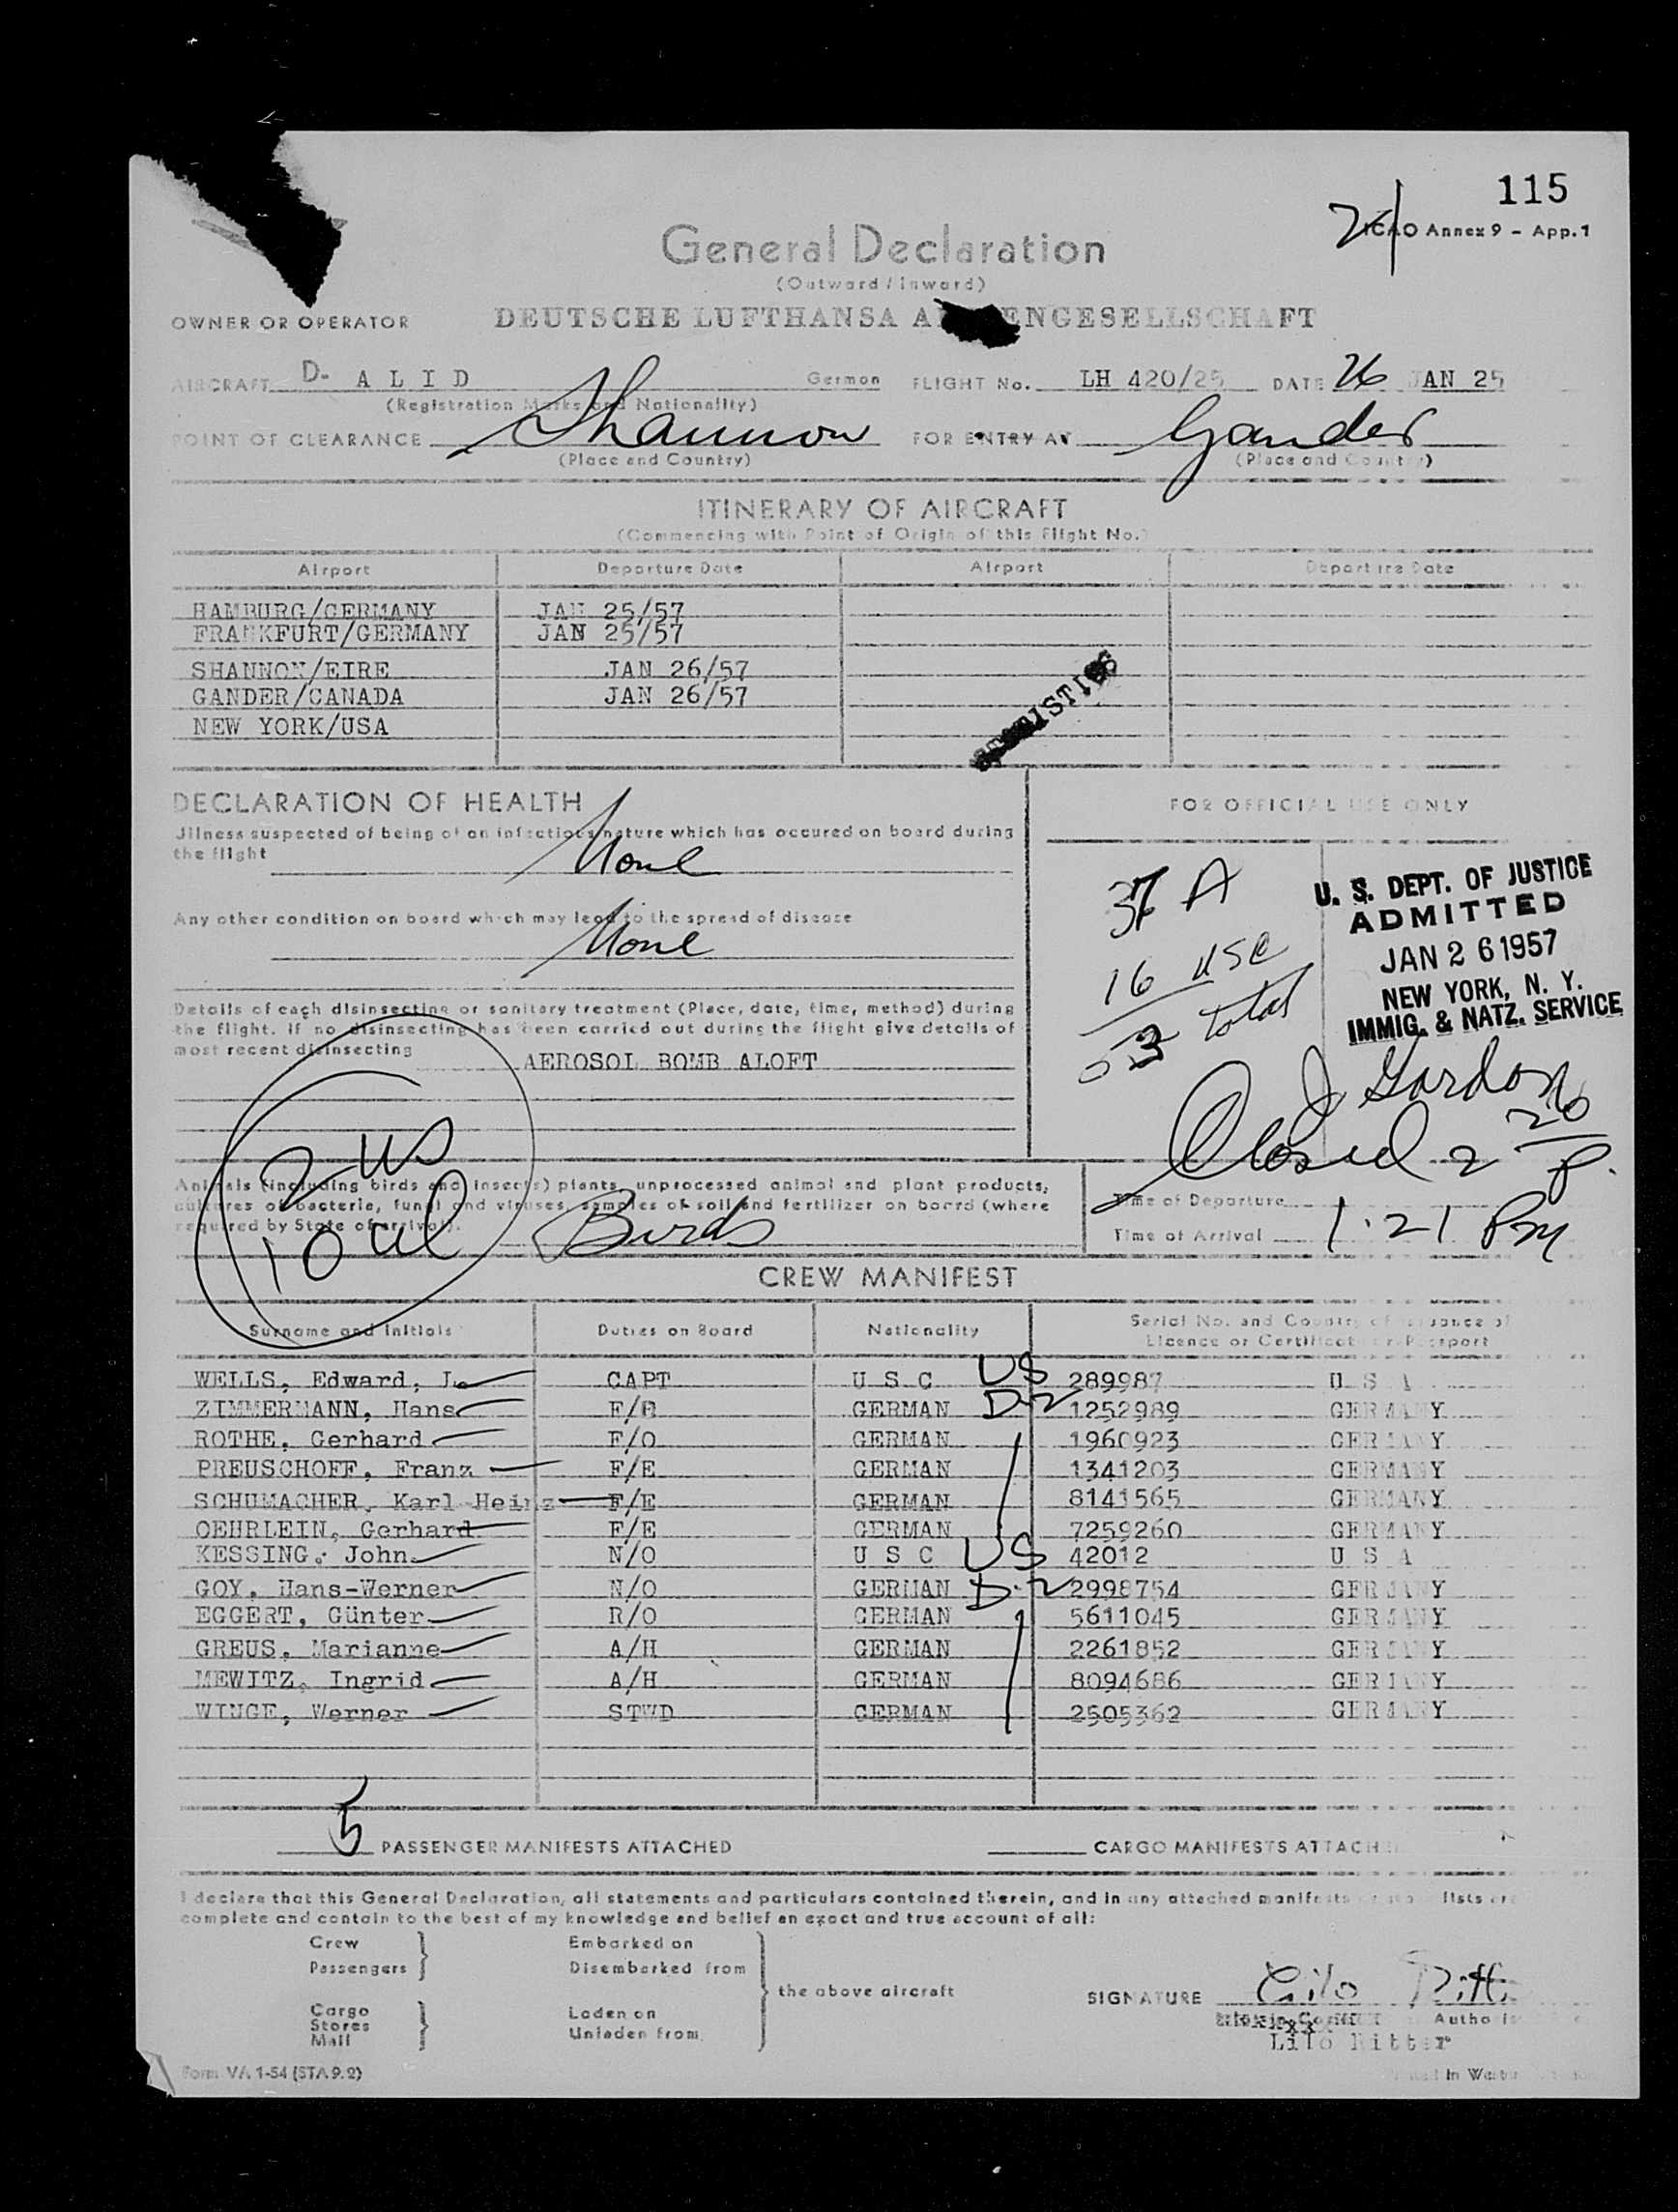 115
21
ICAO Annex 9 - App. 1
General Declaration
(Outward / Inward)
OWNER OR OPERATOR DEUTSCHE LUFTHANSA A ENGESELLSCHAFT
AIRCRAFT D- A L I D German FLIGHT No. LH 420/25 DATE 26 JAN 25
(Registration Marks and Nationality)
POINT OF CLEARANCE Shannon FOR ENTRY AT Gander
(Place and Country) (Place and Country)
ITINERARY OF AIRCRAFT
(Commencing with Point of Origin of this Flight No.)
Airport Departure Date Airport Departure Date
HAMBURG/GERMANY JAN 25/57
FRANKFURT/GERMANY JAN 25/57
SHANNON/EIRE JAN 26/57
GANDER/CANADA JAN 26/57
NEW YORK/USA
STATISTICS
DECLARATION OF HEALTH
Jilness suspected of being of an infectious nature which has occured on board during
the flight None
Any other condition on board which may lead to the spread of disease
None
Details of each disinsecting or sanitary treatment (Place, date, time, method) during
the flight. if no disinsecting has been carried out during the flight give details of
most recent disinsecting AEROSOL BOMB ALOFT
FOR OFFICIAL USE ONLY
37 A
16 USC
53 total
U. S. DEPT. OF JUSTICE
ADMITTED
JAN 26 1957
NEW YORK, N. Y.
IMMIG. & NATZ. SERVICE
J Gordon
Closed 2 20 P.
2 US
10
Animals (including birds and insects) plants, unprocessed animal and plant products,
cultures of bacteria, fungi and viruses, samples of soil and fertilizer on board (where
required by State of arrival). Birds
Time of Departure
Time of Arrival 1.21 PM
CREW MANIFEST
Surname and Initials Duties on Board Nationality Serial No. and Country of issuance of
Licence or Certificate or Passport
WELLS, Edward, J. CAPT U S C US 289987 U S A
ZIMMERMANN, Hans F/O GERMAN D-2 1252989 GERMANY
ROTHE, Gerhard F/O GERMAN 1960923 GERMANY
PREUSCHOFF, Franz F/E GERMAN 1341203 GERMANY
SCHUMACHER, Karl Heinz F/E GERMAN 8141565 GERMANY
OEHRLEIN, Gerhard F/E GERMAN 7259260 GERMANY
KESSING, John N/O U S C US 42012 U S A
GOY, Hans-Werner N/O GERMAN D-2 2998754 GERMANY
EGGERT, Günter R/O GERMAN 5611045 GERMANY
GREUS, Marianne A/H GERMAN 2261852 GERMANY
MEWITZ, Ingrid A/H GERMAN 8094686 GERMANY
WINGE, Werner STWD GERMAN 2505362 GERMANY
5 PASSENGER MANIFESTS ATTACHED CARGO MANIFESTS ATTACHED
I declare that this General Declaration, all statements and particulars contained therein, and in any attached manifests lists are
complete and contain to the best of my knowledge and belief an exact and true account of all:
Crew Embarked on
Passengers Disembarked from
the above aircraft
Cargo Laden on
Stores
Mail Unladen from
SIGNATURE Lilo Ritter
Lilo Ritter
Form VA 1-54 (STA 9.2)